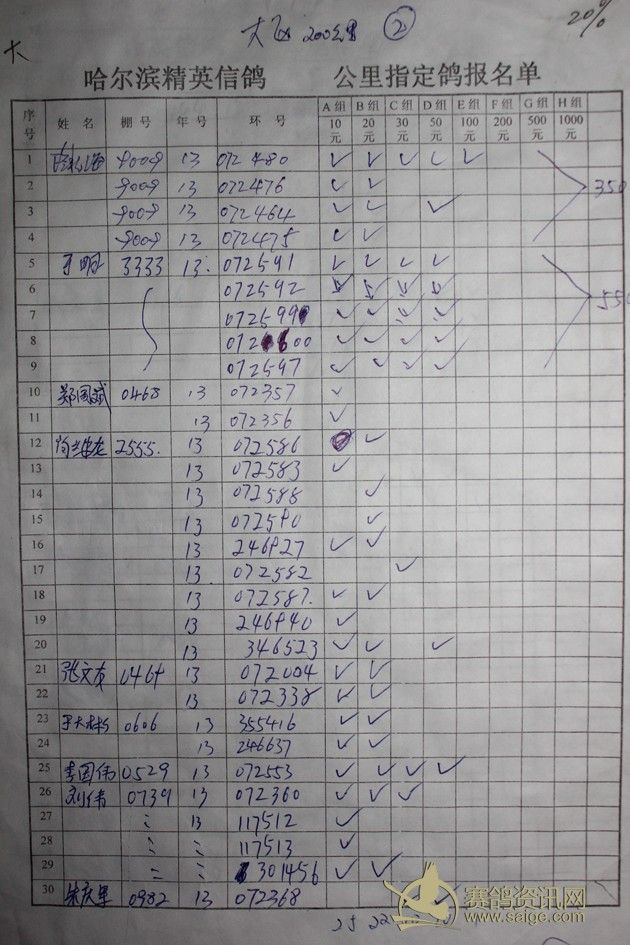 20%
大 200公里 ②
大
哈尔滨精英信鸽 公里指定鸽报名单
序号 姓名 棚号 年号 环号 A组10元 B组20元 C组30元 D组50元 E组100元 F组200元 G组500元 H组1000元
1 9009 13 072480 ✓ ✓ ✓ ✓ ✓
2 9009 13 072476 ✓ ✓ 350
3 9009 13 072464 ✓ ✓ ✓
4 9009 13 072475 ✓ ✓
5 3333 13 072591 ✓ ✓ ✓ ✓
6 072592 ✓ ✓ ✓ ✓ 550
7 ✓ ✓ ✓ ✓
8 ✓ ✓ ✓ ✓
9 072597 ✓ ✓ ✓ ✓
10 郑国斌 0468 13 072357 ✓
11 13 072356 ✓
12 2555. 13 072586 ✓
13 13 072583 ✓
14 13 072588 ✓
15 13 ✓
16 13 246927 ✓ ✓
17 13 072582 ✓
18 13 072587. ✓ ✓
19 13 246940 ✓
20 13 346523 ✓ ✓ ✓
21 张文友 0464 13 072004 ✓ ✓
22 13 072338 ✓ ✓
23 0606 13 355416 ✓ ✓
24 13 246637 ✓ ✓
25 李国伟 0529 13 072553 ✓ ✓ ✓ ✓
26 刘伟 0739 13 072360 ✓ ✓ ✓
27 13 117512 ✓
28 117513 ✓
29 301456 ✓ ✓
30 0982 13 072368 ✓
25 22
赛鸽资讯网
www.saige.com